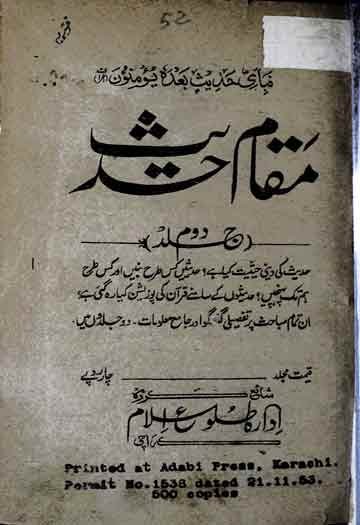 52
فبای حدیث بعدہ یؤمنون
مقام حدیث
(جلد دوم)
حدیث کی دینی حیثیت کیا ہے؟ حدیثیں کس طرح بنیں اور کس طرح
ہم تک پہنچیں؟ حدیثوں کے سامنے قرآن کی پوزیشن کیا رہ گئی ہے؟
ان تمام مباحث پر تفصیلی گفتگو اور جامع معلومات۔ دو جلدوں میں۔
قیمت مجلد چار روپے
شائع کردہ
ادارہ طلوع اسلام
کراچی
Printed at Adabi Press, Karachi.
Permit No.1538 dated 21.11.53.
500 copies